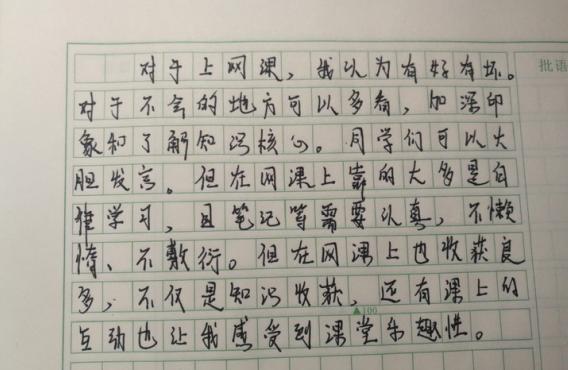 批语
对于上网课，我认为有好有坏。
对于不会的地方可以多看，加深印
象和了解知识核心。同学们可以大
胆发言。但在网课上靠的大多是自
律学习，且笔记等需要认真，不懒
惰、不敷衍。但在网课上也收获良
多，不仅是知识收获，还有课上的
▲100
互动也让我感受到课堂乐趣性。